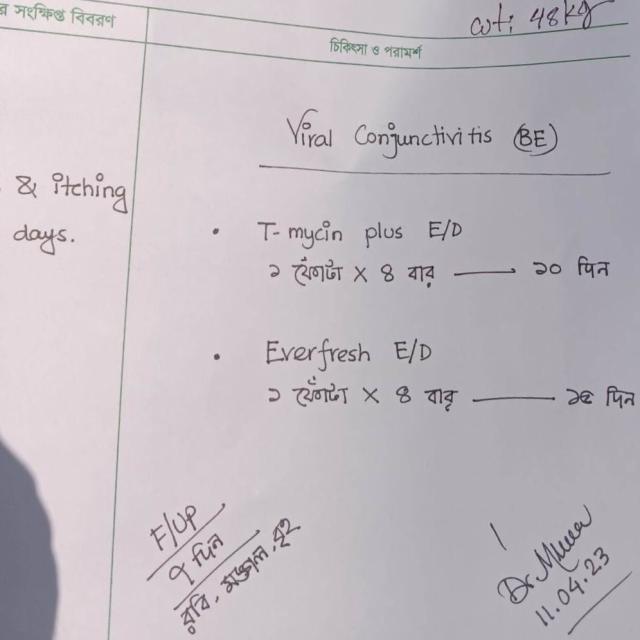 র সংক্ষিপ্ত বিবরণ
wt: 48kg
চিকিৎসা ও পরামর্শ
Viral Conjunctivitis (BE)
& itching
days.
• T-mycin plus E/D
১ ফোঁটা X ৪ বার — ১০ দিন
• Everfresh E/D
১ ফোঁটা X ৪ বার — ১৫ দিন
F/UP
৭ দিন
রবি, মঙ্গল, বৃহ
Dr. Muna
11.04.23